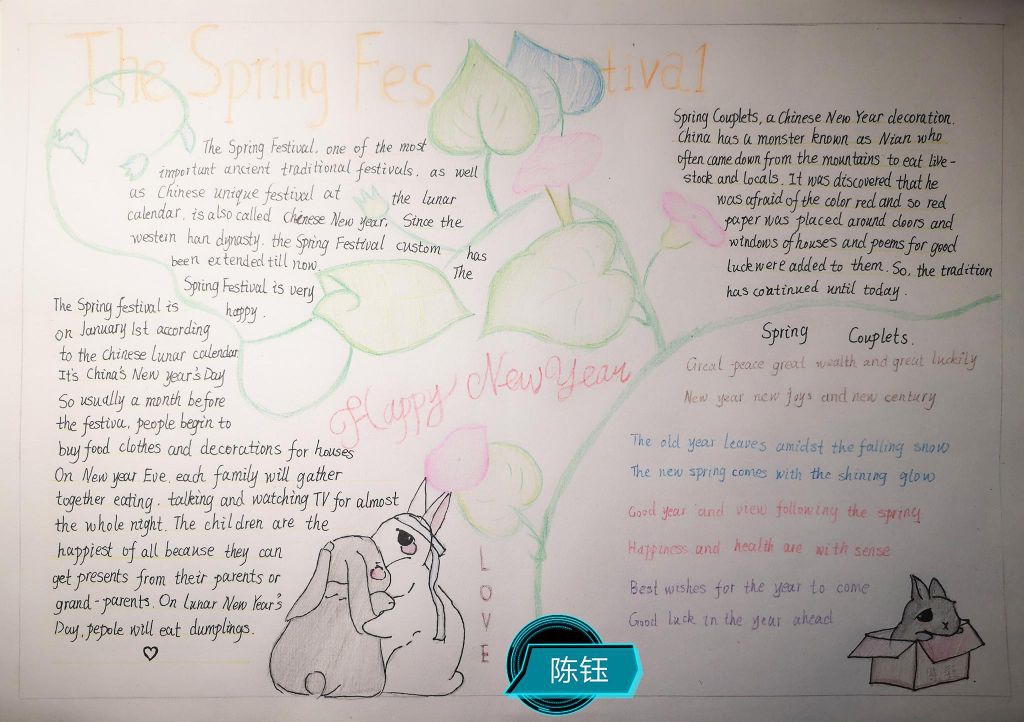 The Spring Festival
The Spring Festival, one of the most
important ancient traditional festivals, as well
as Chinese unique festival at the lunar
calendar, is also called Chinese New Year. Since the
western han dynasty, the Spring Festival custom has
been extended till now. The
Spring Festival is very
happy.
The Spring festival is
on January 1st according
to the Chinese lunar calendar
It's China's New year's Day
So usually a month before
the festiva, people begin to
buy food clothes and decorations for houses
On New year Eve, each family will gather
together eating, talking and watching TV for almost
the whole night. The children are the
happiest of all because they can
get presents from their parents or
grand-parents. On Lunar New Year's
Day, pepole will eat dumplings.
Happy New Year
LOVE
Spring Couplets, a Chinese New Year decoration.
China has a monster known as Nian who
often came down from the mountains to eat live-
stock and locals. It was discovered that he
was afraid of the color red and so red
paper was placed around doors and
windows of houses and poems for good
luck were added to them. So, the tradition
has continued until today.
Spring Couplets.
Great peace great wealth and great luckily
New year new joys and new century
The old year leaves amidst the falling snow
The new spring comes with the shining glow
Good year and view following the spring
Happiness and health are with sense
Best wishes for the year to come
Good luck in the year ahead
陈钰